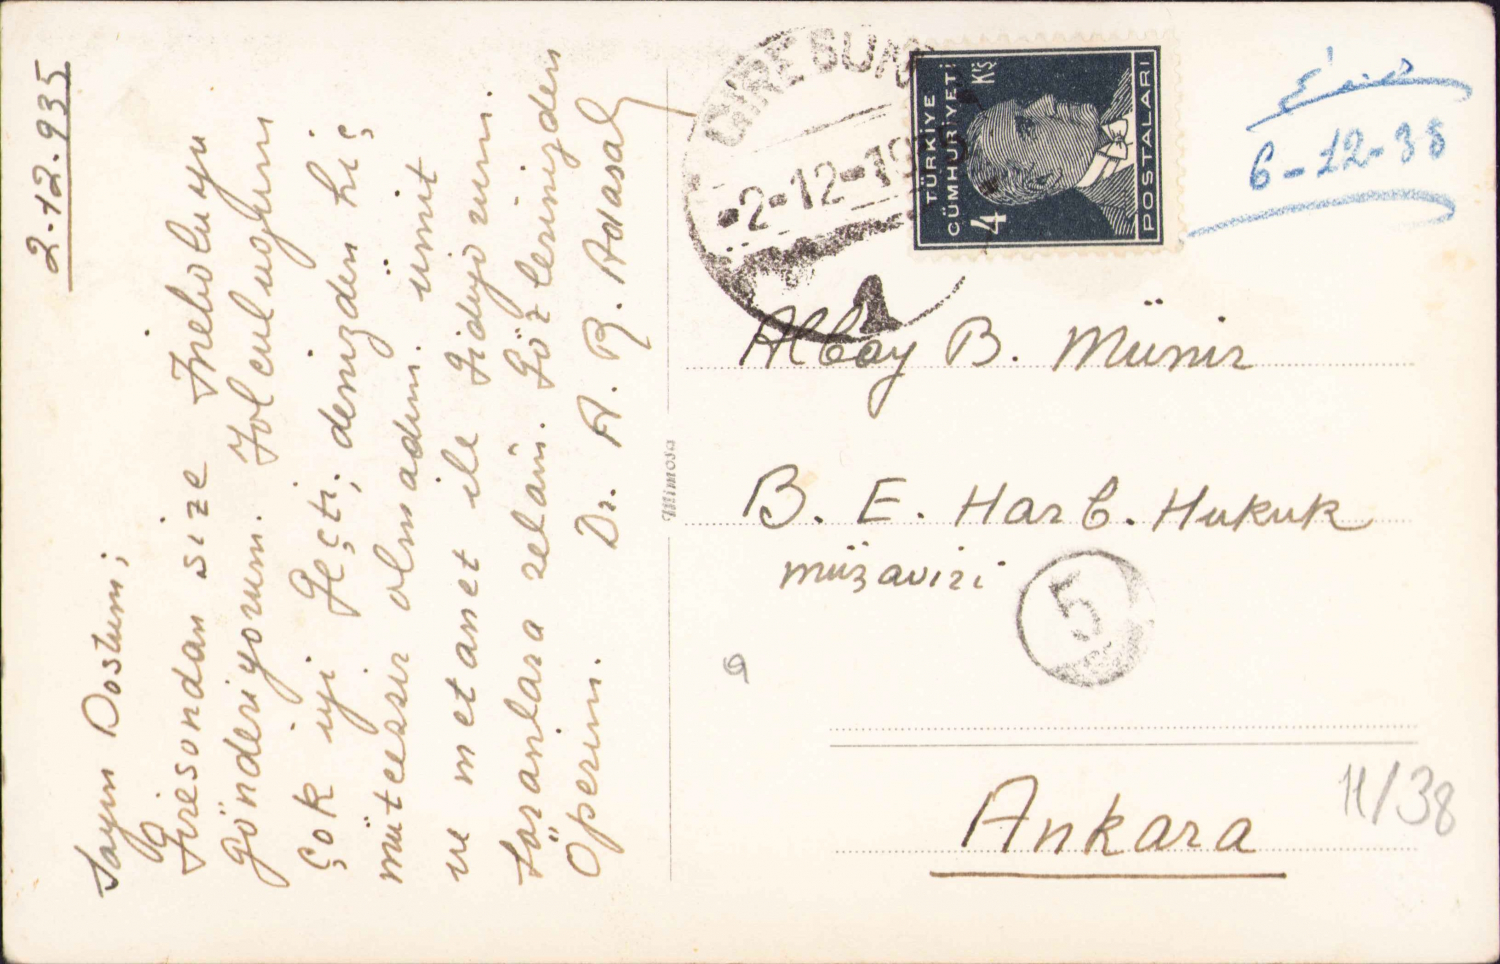 2-12.935
Sayın Dostum;
Giresondan size İneboluyu
gönderiyorum. Yolculuğum
çok iyi geçti, denizden hiç
müteessir olmadım. ümit
ve metanet ile gidiyorum.
Soranlara selâm. Gözlerinizden
Öperim.
Dr. A. R. Adasal
Mimosa
GİRESUN
-2-12-19
TÜRKİYE
CÜMHURİYETİ
4 Kş
POSTALARI
6-12-35
Albay B. Münir
B. E. Harb. Hukuk
müşaviri
5
Ankara
11/38